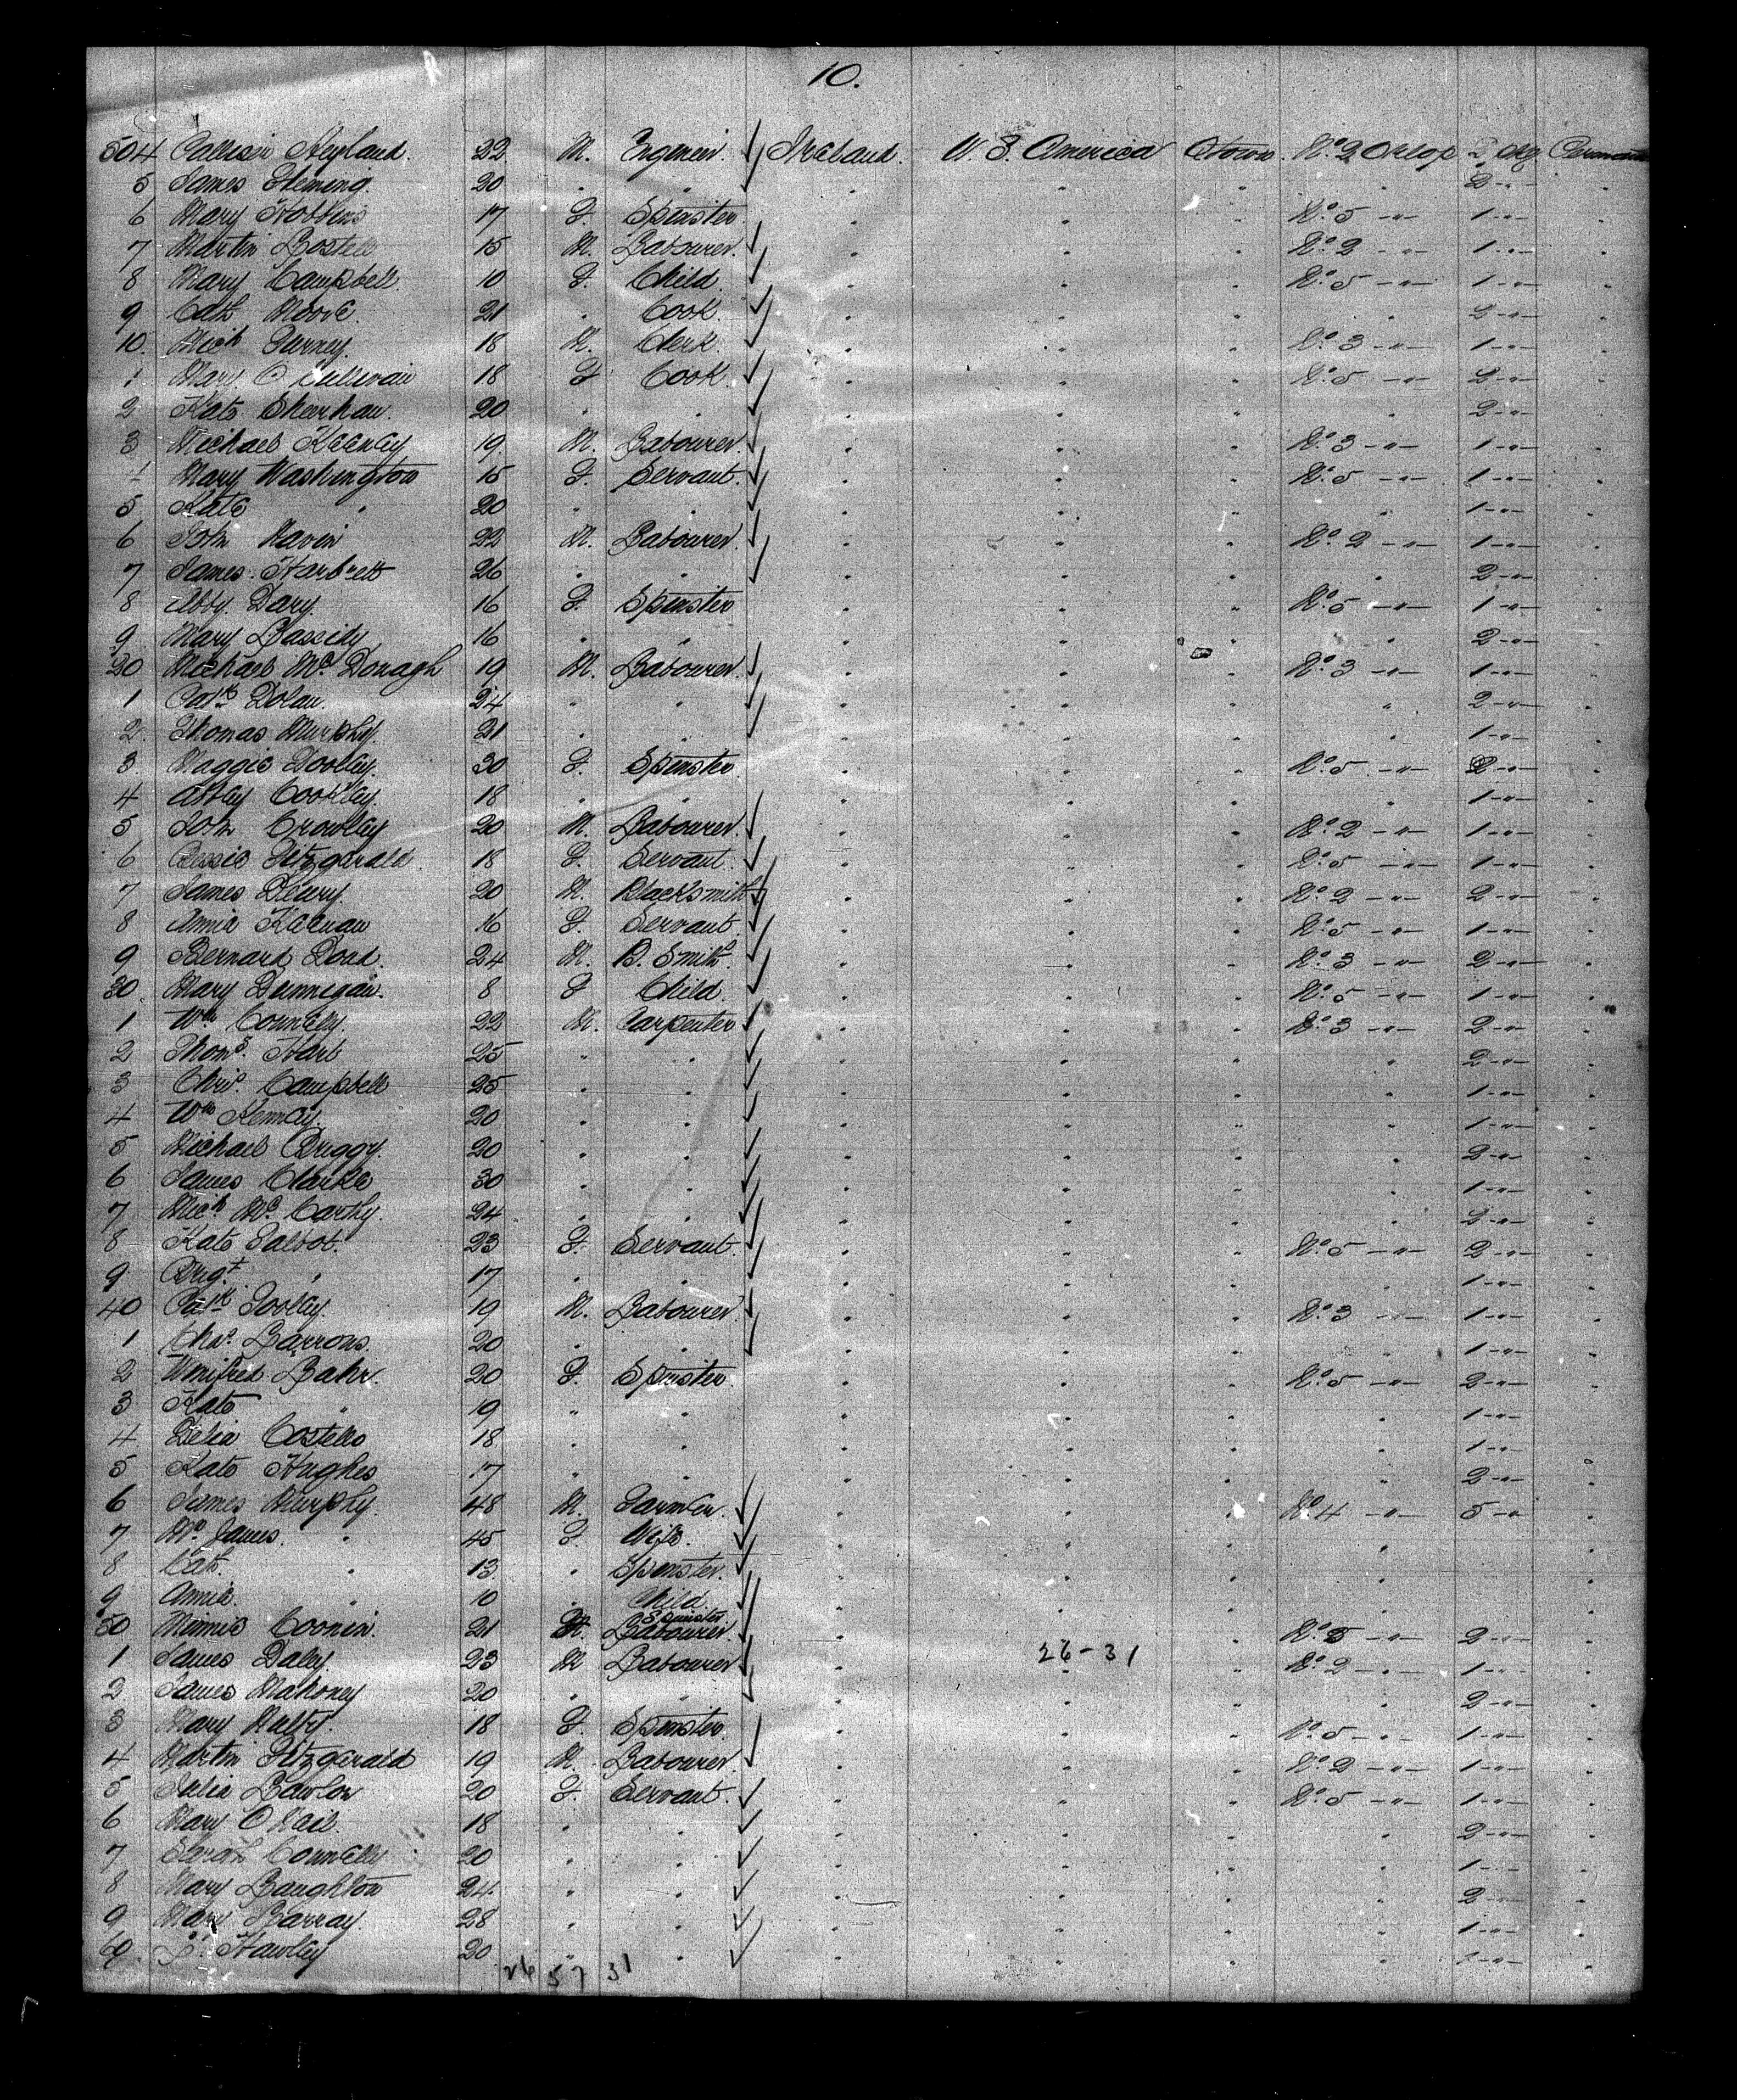 10.
504 Callisin Heyland. 22 M. Engineer. Ireland. U. S. America Qtown. No. 2 Orlop 2 Bg Permanent
5 James Fleming. 20 " " " " " " 2 - " -
6 Mary Hobbins 17 F. Spinster. " " " No. 5 - " - 1 - " -
7 Martin Costell 15 M. Labourer. " " " No. 2 " 1 - " -
8 Mary Campbell. 10 F. Child. " " " No. 5 - " - 1 - " -
9 Cath Moore. 21 " Cook. " " " " 2 - " -
10. Mich Furney. 18 M. Clerk. " " " No. 3 - " - 1 - " -
1 Mary O Sullivan 18 F Cook. " " " No. 5 - " - 2 - " -
2 Kate Sheehan. 20 " " " " " " 2 - " -
3 Michael Keaney 19 M. Labourer " " " No. 3 - " - 1 - " -
4 Mary Washington 15 F. Servant. " " " No. 5 - " - 1 - " -
5 Kate " 20 " " " " " " 1 - " -
6 John Navin 22 M. Labourer. " " " No. 2 - " - 1 - " -
7 James Harbrett 26 " " " " " " 2 - " -
8 Abby Dary. 16 F. Spinster " " " No. 5 - " - 1 - " -
9 Mary Cassidy 16 " " " " " " 2 - " -
20 Michael Mc. Donagh 19 M. Labourer. " " " No. 3 - " - 1 - " -
1 Patk Dolan. 24 " " " " " " 2 - " -
2 Thomas Murphy. 21 " " " " " " 1 - " -
3. Maggie Dooley. 30 F. Spinster. " " " No. 5 - " - 2 - " -
4 Abbey Cookley. 18 " " " " " " 1 - " -
5 John Crowley 20 M. Labourer. " " " No. 2 - " - 1 - " -
6 Bessie Fitzgerald 18 F. Servant. " " " No. 5 - " - 1 - " -
7 James Deary. 20 M. Blacksmith " " " No. 2 - " - 2 - " -
8 Annie Keenan 16 F. Servant. " " " No. 5 - " - 1 - " -
9 Bernard Dord. 24 M. B. Smith. " " " No. 3 - " - 2 - " -
30. Mary Dannigan. 8 F Child. " " " No. 5 - " - 1 - " -
1 Wm Connelly. 22 M. Carpenter " " " No. 3 - " - 2 - " -
2 Thoms. Hart 25 " " " " " " 2 - " -
3 Chrs. Campbell 25 " " " " " " 1 - " -
4 Wm Kenney. 20 " " " " " " 1 - " -
5 Michael Briggy. 20 " " " " " " 2 - " -
6 James Clarke 30 " " " " " " 1 - " -
7 Mich Mc. Carthy. 24 " " " " " " 2 - " -
8 Kate Talbot. 23 F. Servant. " " " No. 5 - " - 2 - " -
9 Brigt. " 17 " " " " " " 1 - " -
40 Patk Tooley. 19 M. Labourer. " " " No. 3 - " - 1 - " -
1 Chrs. Barrons. 20 " " " " " " 1 - " -
2 Winifred Bahr. 20 F. Spinster. " " " No. 5 - " - 2 - " -
3 Kate " 19 " " " " " " 1 - " -
4 Delia Costello 18 " " " " " " 1 - " -
5 Kate Hughes 17 " " " " " " 2 - " -
6 James Murphy. 48 M. Farmer. " " " No. 4 - " - 5 - " -
7 Mrs James. " 45 F. Wife. " " " "
8 Cath. " 13 " Spinster. " " " "
9 Annie. " 10 " Child. " " " "
Spinster.
50 Minnie Coonin. 21 F. Labourer. " " " No. 5 - " - 2 - " -
26-31
1 James Daley. 23 M Labourer " " " No. 2 - " - 1 - " -
2 James Mahoney 20 " " " " " " 2 - " -
3 Mary Malty. 18 F. Spinster " " " No. 5 - " - 1 - " -
4 Martin Fitzgerald 19 M. Labourer. " " " No. 2 - " - 1 - " -
5 Julia Lawlor 20 F. Servant. " " " No. 5 - " - 1 - " -
6 Mary O Neil. 18 " " " " " " 2 - " -
7 Sarah Connelly 20 " " " " " " 1 - " -
8 Mary Baughton 24. " " " " " " 2 - " -
9 Mary Barray 28 " " " " " " 1 - " -
60. Hawley 20 " " " " " " 1 - " -
26 57 31